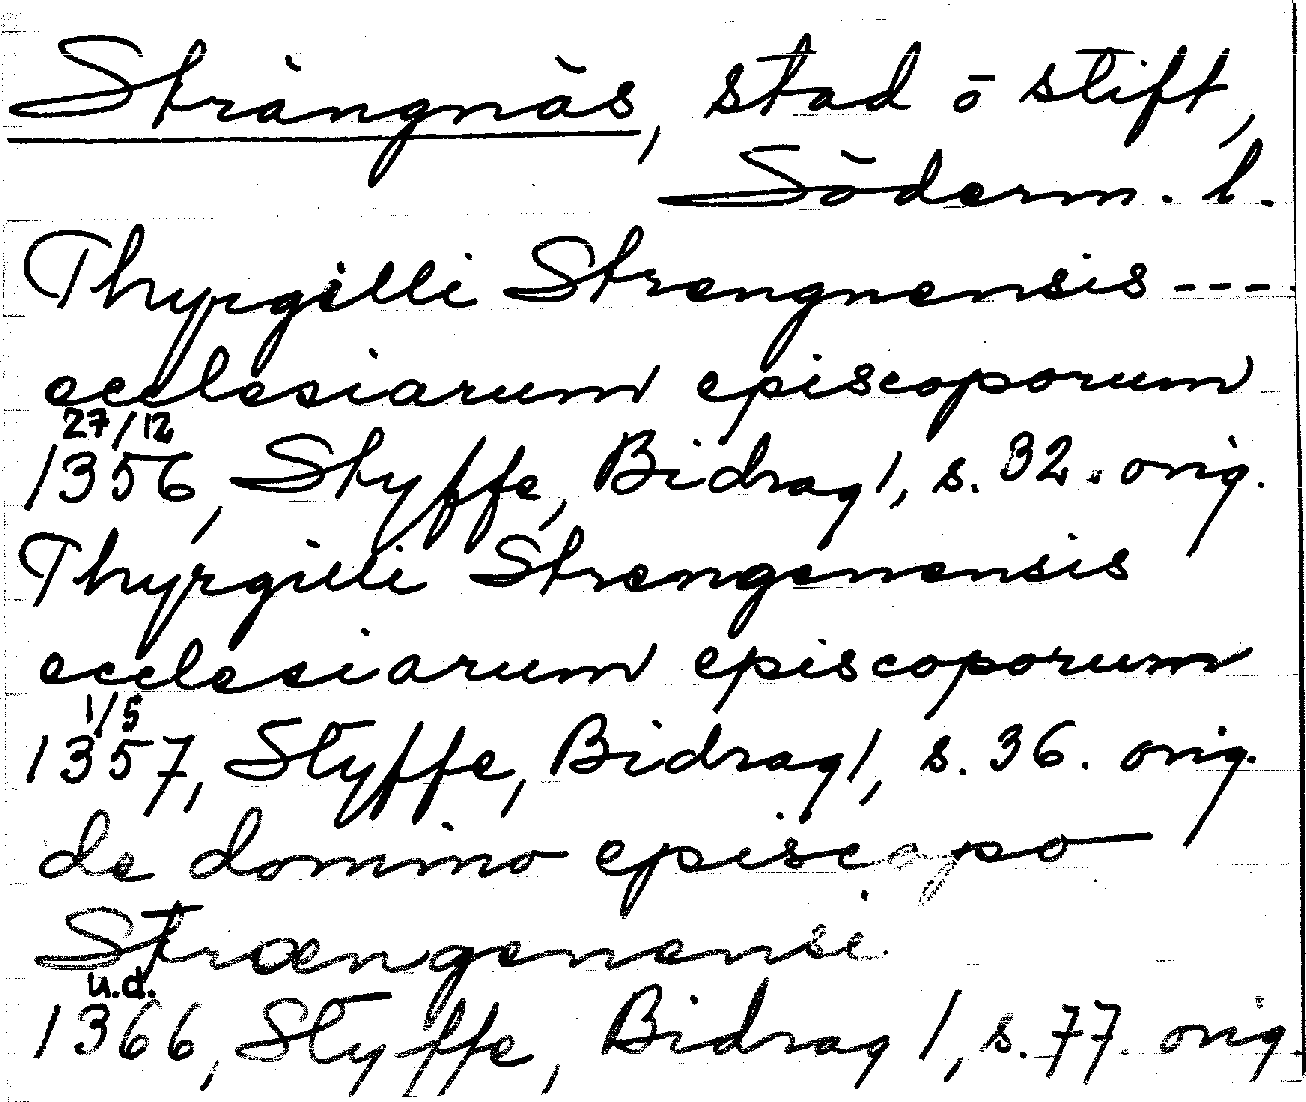 Strängnäs, stad o stift,
Söderm. l.
Thyrgilli Strengnensis ----
ecclesiarum episcoporum
27/12
1356, Styffe, Bidrag 1, s. 32. orig.
Thyrgilli Strengenensis
ecclesiarum episcoporum
1/5
1357, Styffe, Bidrag 1, s. 36. orig.
de domino episcopo
Strængenensi.
u.d.
1366, Styffe, Bidrag 1, s. 77. orig